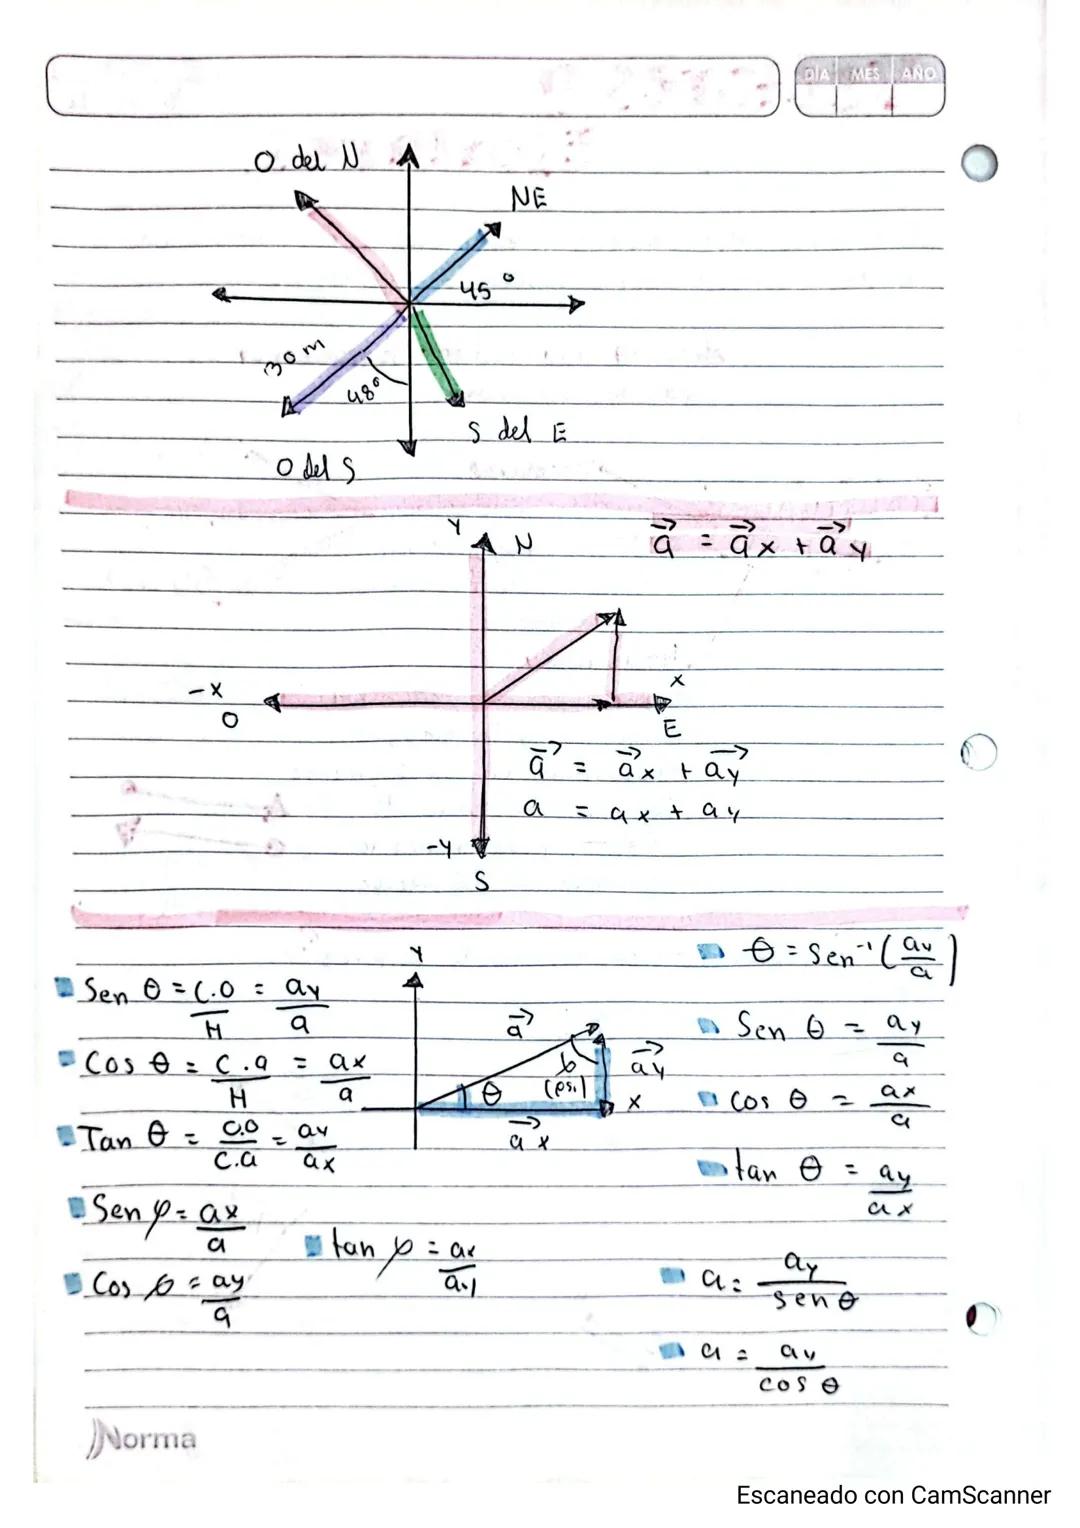 DÍA MES AÑO
O del N
NE
45°
30 m
48°
S del E
O del S
Y
N
a⃗ = a⃗x + a⃗y
-x
O
x
E
a⃗ = a⃗x + a⃗y
a = ax + ay
-y
S
Y
θ = Sen⁻¹ (ay/a)
Sen θ = C.O/H = ay/a
a⃗
Sen θ = ay/a
Cos θ = C.a/H = ax/a
θ
(psi)
a⃗y
x
a⃗x
cos θ = ax/a
Tan θ = C.O/C.a = ay/ax
tan θ = ay/ax
Sen φ = ax/a
tan φ = ax/ay
Cos φ = ay/a
a = ay/sen θ
a = av/cos θ
Norma
Escaneado con CamScanner